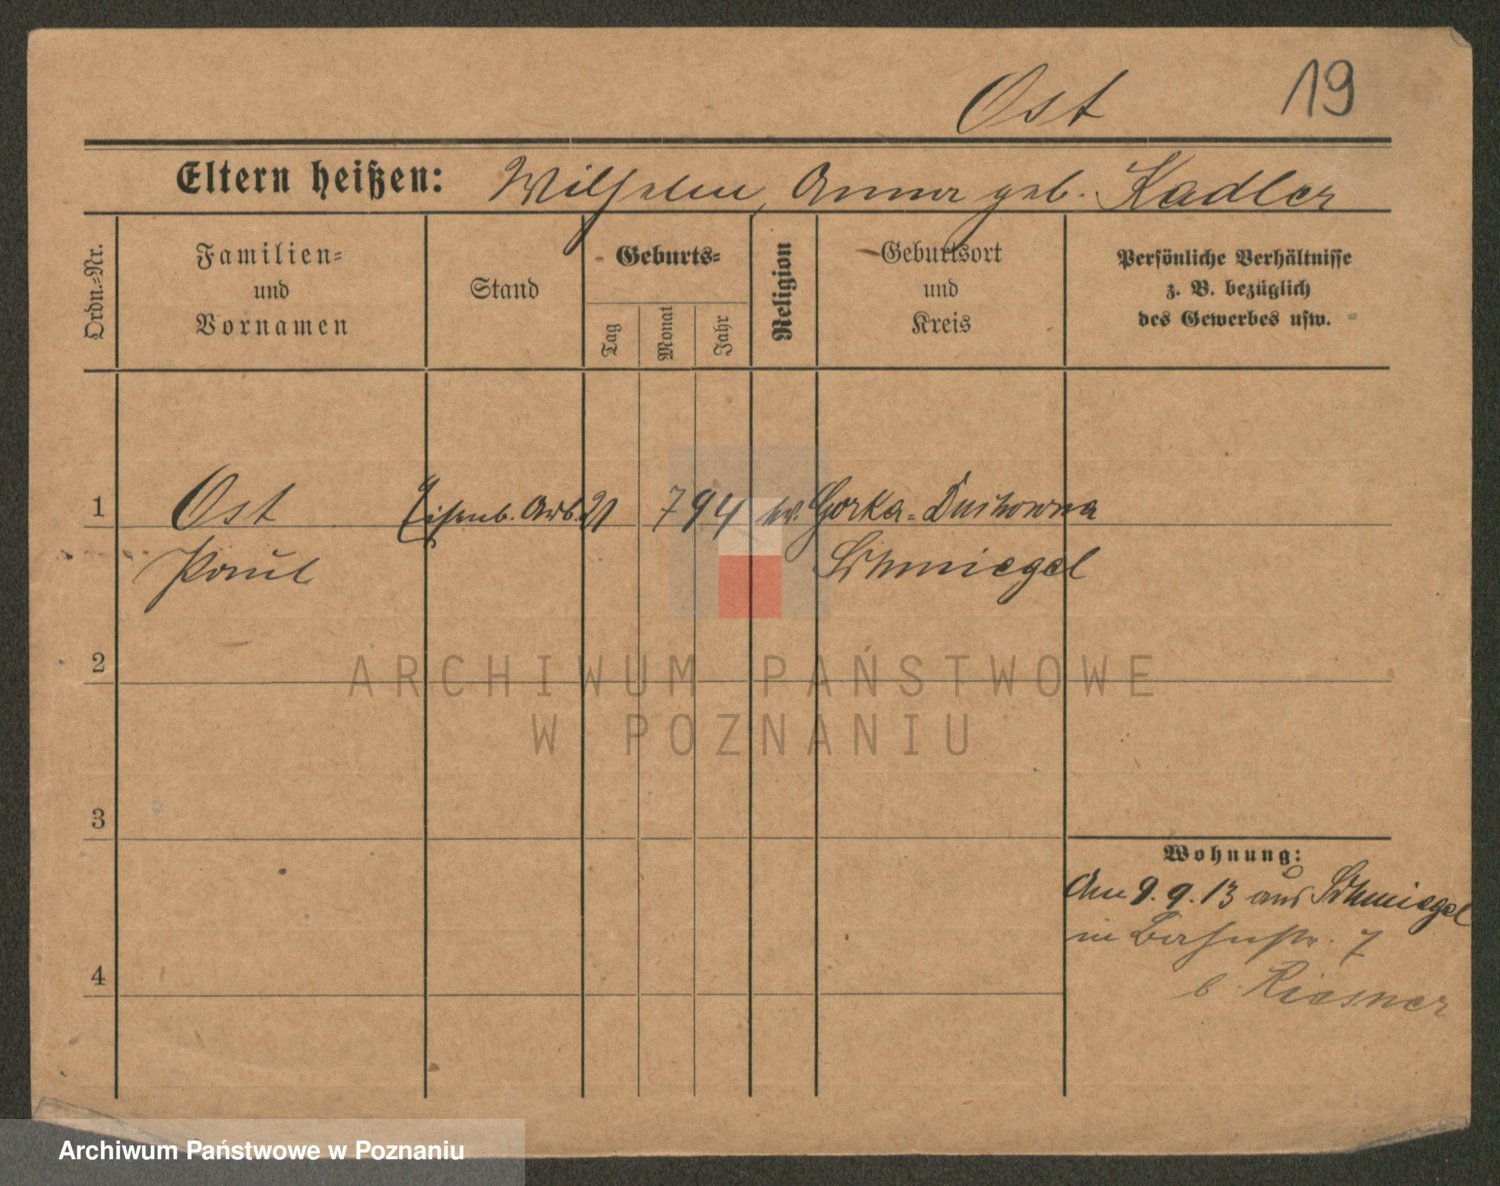 Ost 19
Eltern heißen: Wilhelm, Anna geb. Kadler
Ordn.=Nr.
Familien=
und
Vornamen
Stand
Geburts=
Tag
Monat
Jahr
Religion
Geburtsort
und
Kreis
Persönliche Verhältnisse
z. B. bezüglich
des Gewerbes usw.
1 Ost Eisenb. Arb. 21 7 94 ev. Gorka=Duchowna
Paul Schmiegel
2
ARCHIWUM PAŃSTWOWE
W POZNANIU
3
Wohnung:
Am 9.9.13 aus Schmiegel
in Bahnstr. 7
4
b. Riesner
Archiwum Państwowe w Poznaniu